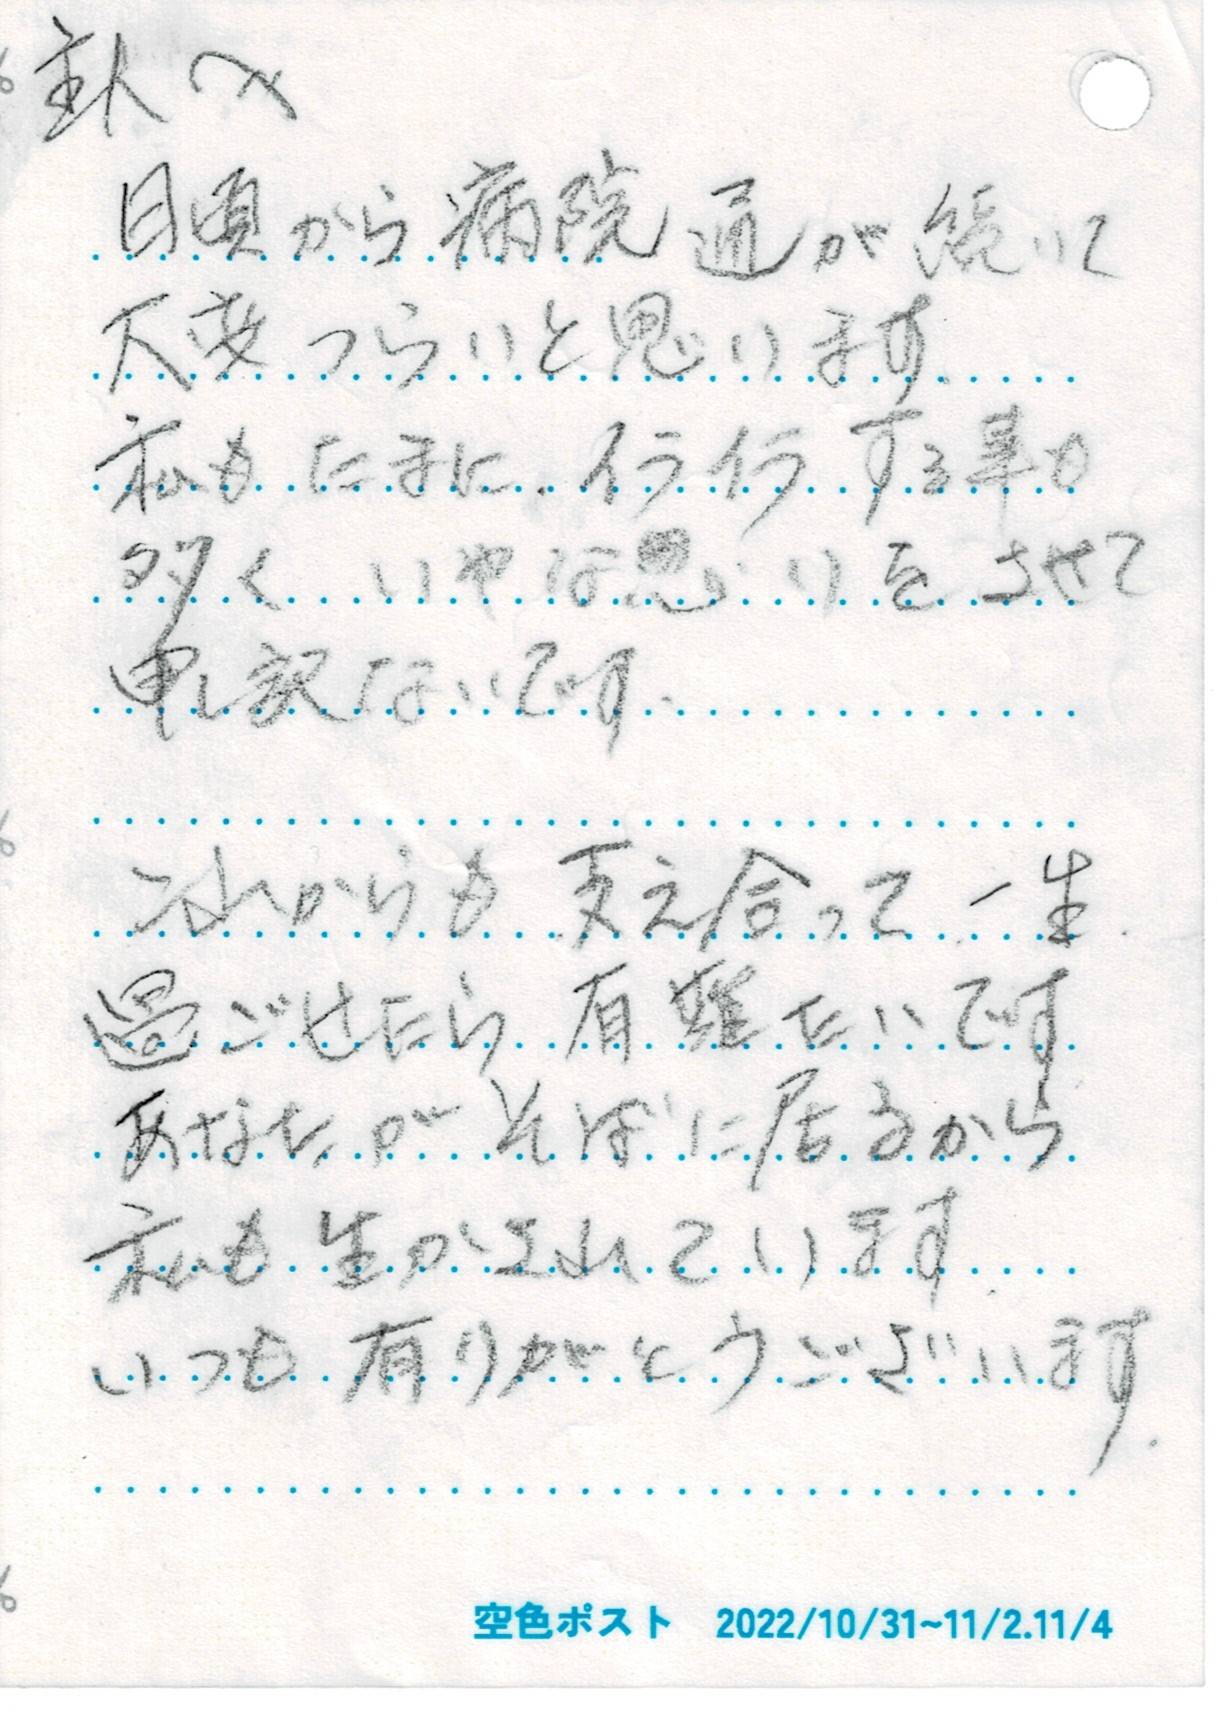 主人へ
日頃から病院通が続いて
大変つらいと思います
私もたまに、イライラする事も
多くいやな思いをさせて
申し訳ないです.
これからも支え合って一生
過ごせたら有難たいです
あなたがそばに居るから
私も生かされています.
いつも有りがとうございます.
空色ポスト 2022/10/31~11/2.11/4